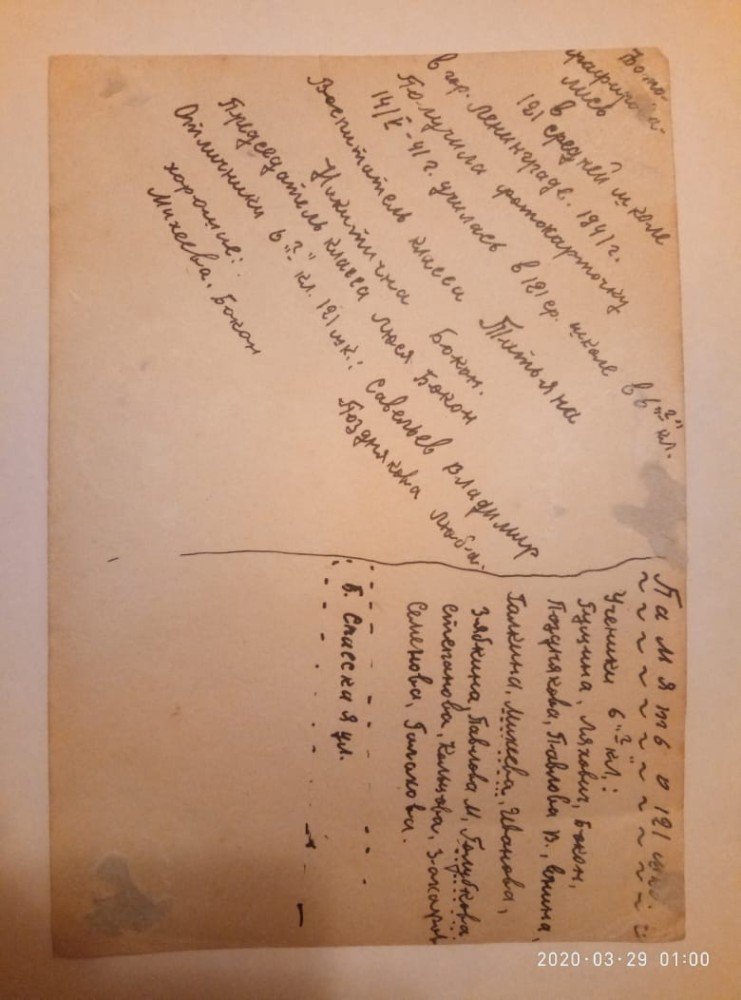 Фото-
графирова-
лись
в
121 средней школе
в гор. Ленинграде. 1941 г.
Получила фотокарточку
14/V-41 г. училась в 121 ср. школе в 6 "2" кл.
Воспитатель класса Татьяна
Никитична Бокон.
Председатель класса Люся Бокон
Отличники 6 "2" кл. 121 шк.: Савельев Владимир
Позднякова Люба.
хорошие:
Михеева, Бокон
Память о 121 шк.
Ученики 6 "2" кл.:
Ляхович, Бокон,
Позднякова, Павлова В.,
Галкина, Михеева, Иванова,
Зябкина, Павлова М, Голубкова
Степанова, Кольцова, Захаров
Семенова, Галахова.
Б. Спасская ул.
2020-03-29 01:00